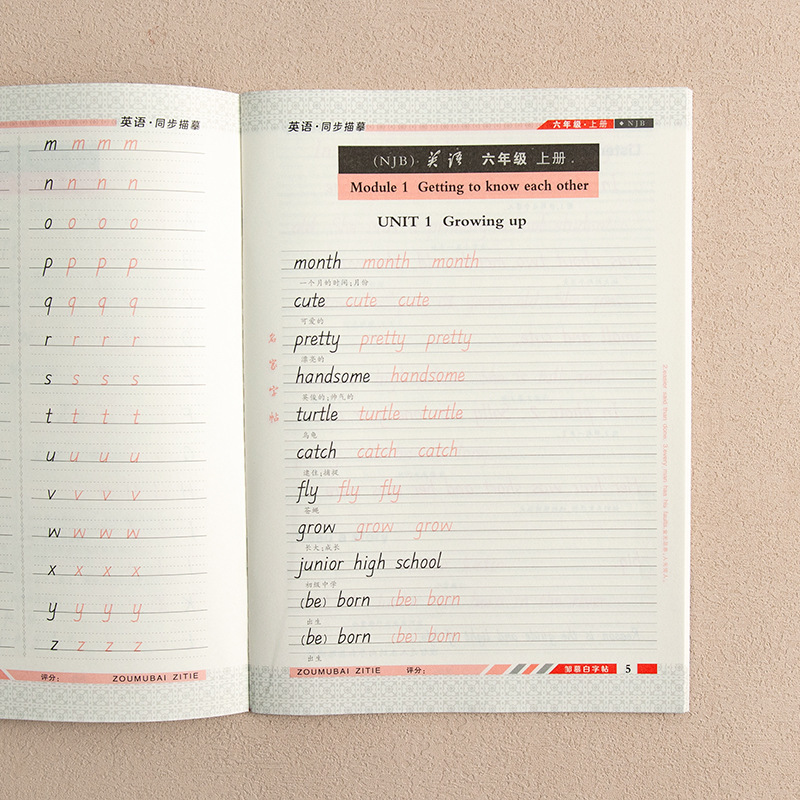 英语·同步描摹
m m m m
n n n n
o o o o
p p p p
q q q q
r r r r
s s s s
t t t t
u u u u
v v v v
w w w w
x x x x
y y y y
z z z z
评分:
ZOUMUBAI ZITIE
英语·同步描摹
六年级·上册 ◆NJB
(NJB)·英语 六年级 上册·
Module 1 Getting to know each other
UNIT 1 Growing up
month month month
一个月的时间;月份
cute cute cute
可爱的
pretty pretty pretty
漂亮的
handsome handsome
英俊的;帅气的
turtle turtle turtle
乌龟
catch catch catch
逮住;捕捉
fly fly fly
苍蝇
grow grow grow
长大;成长
junior high school
初级中学
(be) born (be) born
出生
(be) born (be) born
出生
名家字帖
ZOUMUBAI ZITIE
评分:
邹慕白字帖 5